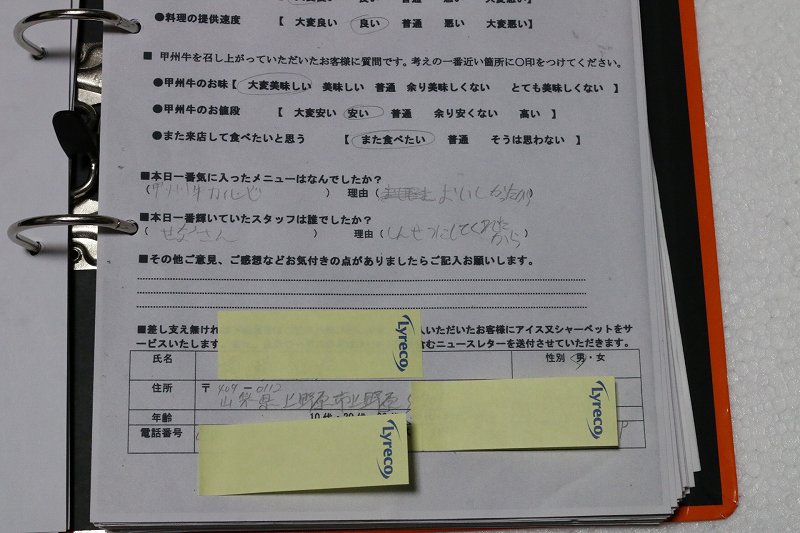 ●料理の提供速度 【 大変良い 良い 普通 悪い 大変悪い】
■ 甲州牛を召し上がっていただいたお客様に質問です。考えの一番近い箇所に〇印をつけてください。
●甲州牛のお味【 大変美味しい 美味しい 普通 余り美味しくない とても美味しくない 】
●甲州牛のお値段 【 大変安い 安い 普通 余り安くない 高い 】
●また来店して食べたいと思う 【 また食べたい 普通 そうは思わない 】
■本日一番気に入ったメニューはなんでしたか?
(甲州牛カルビ ) 理由( おいしかったから)
■本日一番輝いていたスタッフは誰でしたか?
(せなさん ) 理由(しんせつにしてくれたから)
■その他ご意見、ご感想などお気付きの点がありましたらご記入お願いします。
■差し支え無けれ 入いただいたお客様にアイス又シャーベットをサ
ービスいたします 含むニュースレターを送付させていただきます。
氏名 性別 男・女
住所 〒 409-0112
山梨県上野原市上野原
年齢 10代・20代
電話番号
Lyreco
Lyreco
Lyreco